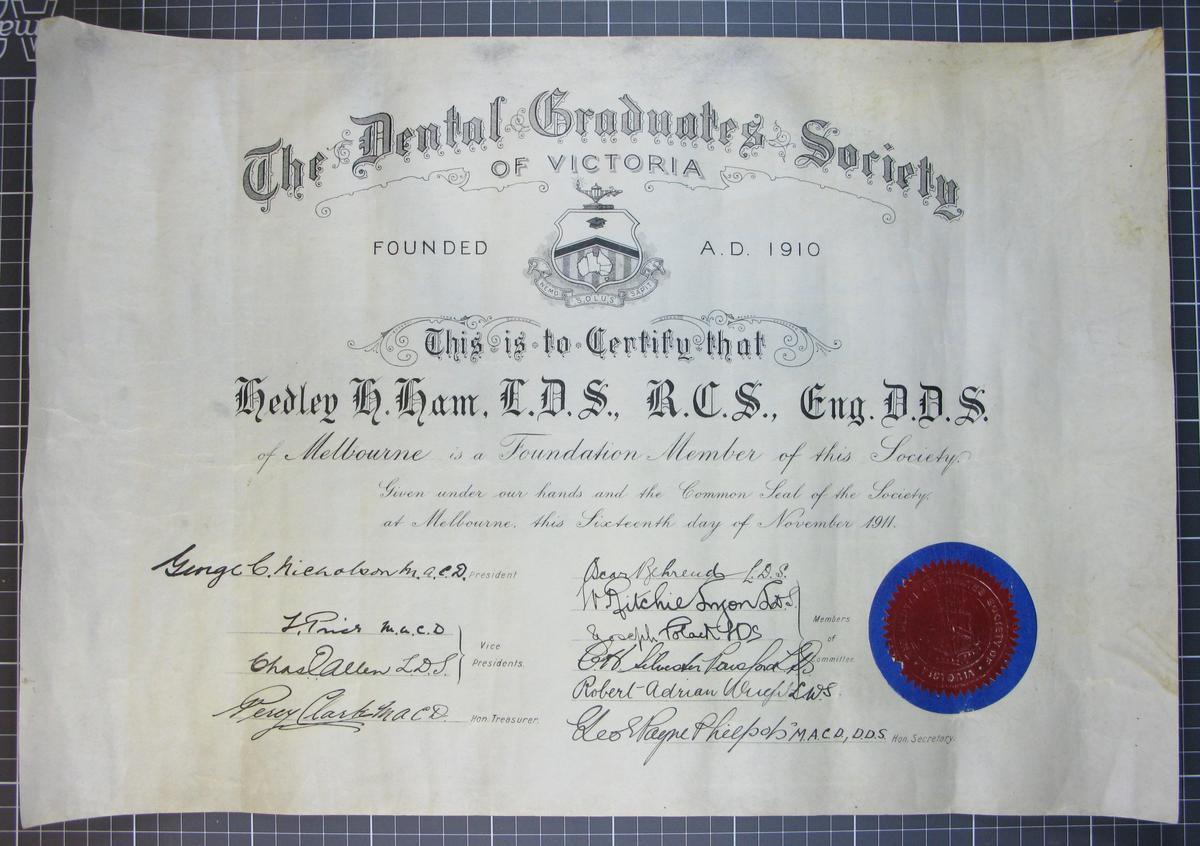 The Dental Graduates Society
OF VICTORIA
FOUNDED A.D. 1910
NEMO SOLUS SAPIT
This is to Certify that
Hedley H. Ham, L.D.S., R.C.S., Eng. D.D.S.
of Melbourne is a Foundation Member of this Society.
Given under our hands and the Common Seal of the Society,
at Melbourne, this Sixteenth day of November 1911.
George C. Nicholson M.A.C.D. President
M.A.C.D
Chas Allen L.D.S.
Vice Presidents.
Percy Clark M.A.C.D. Hon. Treasurer.
Oscar Behrend L.D.S.
W Ritchie
Joseph LDS
Robert Adrian
Members of Committee
Geo E Payne Philpots M.A.C.D., D.D.S. Hon. Secretary.
SOCIETY OF VICTORIA